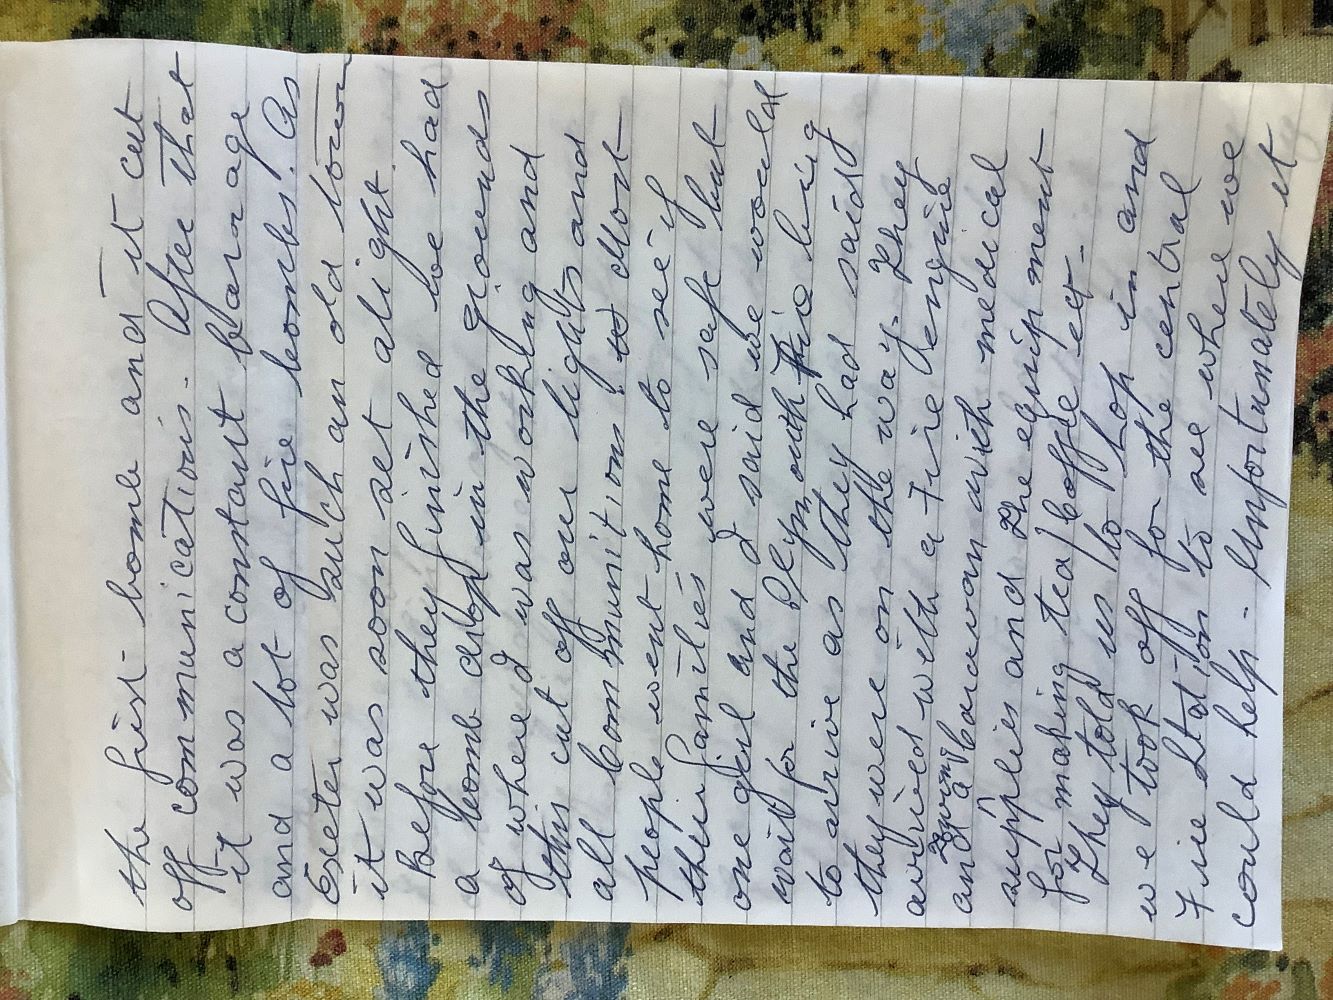 the first bomb and it cut
off communications - After that
it was a constant barrage
and a lot of fire bombs. As
Exeter was such an old town
it was soon set alight.
Before they finished we had
a bomb drop in the grounds
of where I was working and
this cut off our lights and
all communitions. Most
people went home to see if
their families were safe but
one girl and I said we would
wait for the Plymouth Fire
to arrive as they had said
they were on the way - They
arrived with a Fire engine
towing
and a baravan with medical
supplies and the equipment
for making tea/coffee ect -
They told us to hop in and
we took off for the central
Fire Station to see where we
could help - Unfortunately it